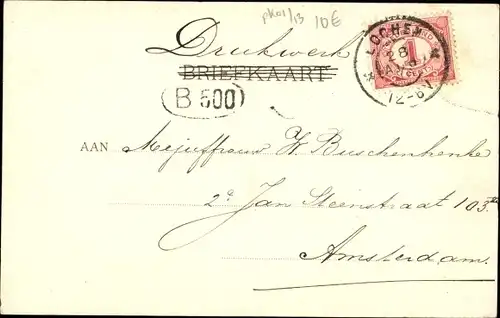 pk01/13 10€
Drukwerk
BRIEFKAART
B 500
LOCHEM
28
12-6N
1
CENT
AAN Mejuffrouw W. Buschenhenke
2e Jan Steenstraat 103
Amsterdam.